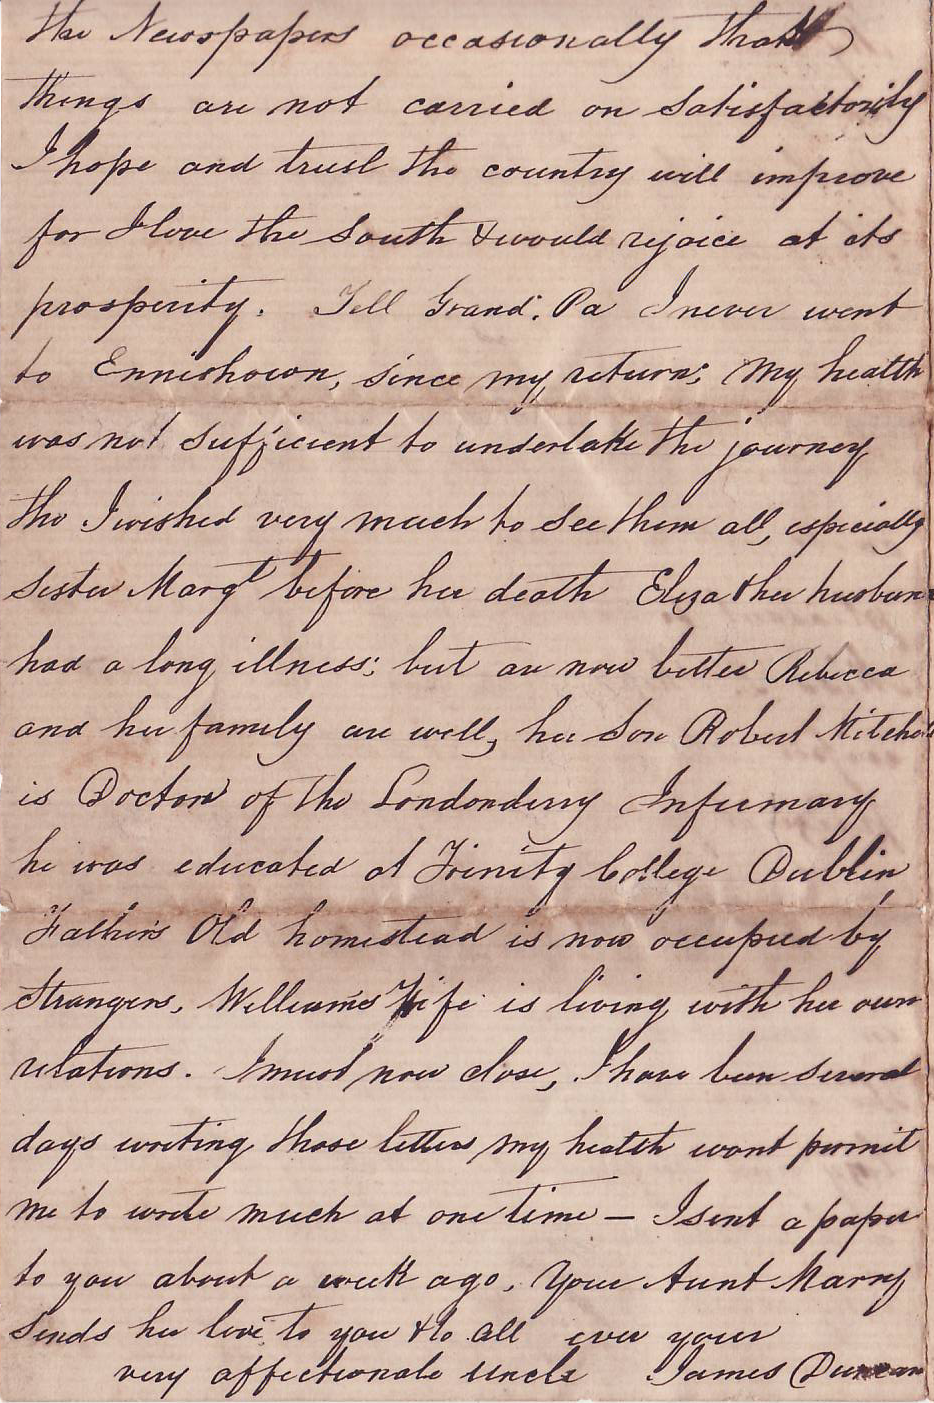 the Newspapers occasionally that
things are not carried on satisfactorily
I hope and trust the country will improve
for I love the South & would rejoice at its
prosperity. Tell Grand. Pa I never went
to Ennishown, since my return; My health
was not sufficient to undertake the journey
tho I wished very much to see them all, especially
sister Margt before her death Eliza & her husban
had a long illness; but are now better Rebecca
and her family are well, her son Robert Mitchel
is Doctor of the Londonderry Infirmary
he was educated at Trinity College Dublin
Father's Old homestead is now occupied by
strangers. William's Wife is living with her own
relations. I must now close, I have been several
days writing those letters my health wont permit
me to write much at one time — I sent a paper
to you about a week ago. Your Aunt Marry
sends her love to you & to all ever your
very affectionate uncle James Duncan